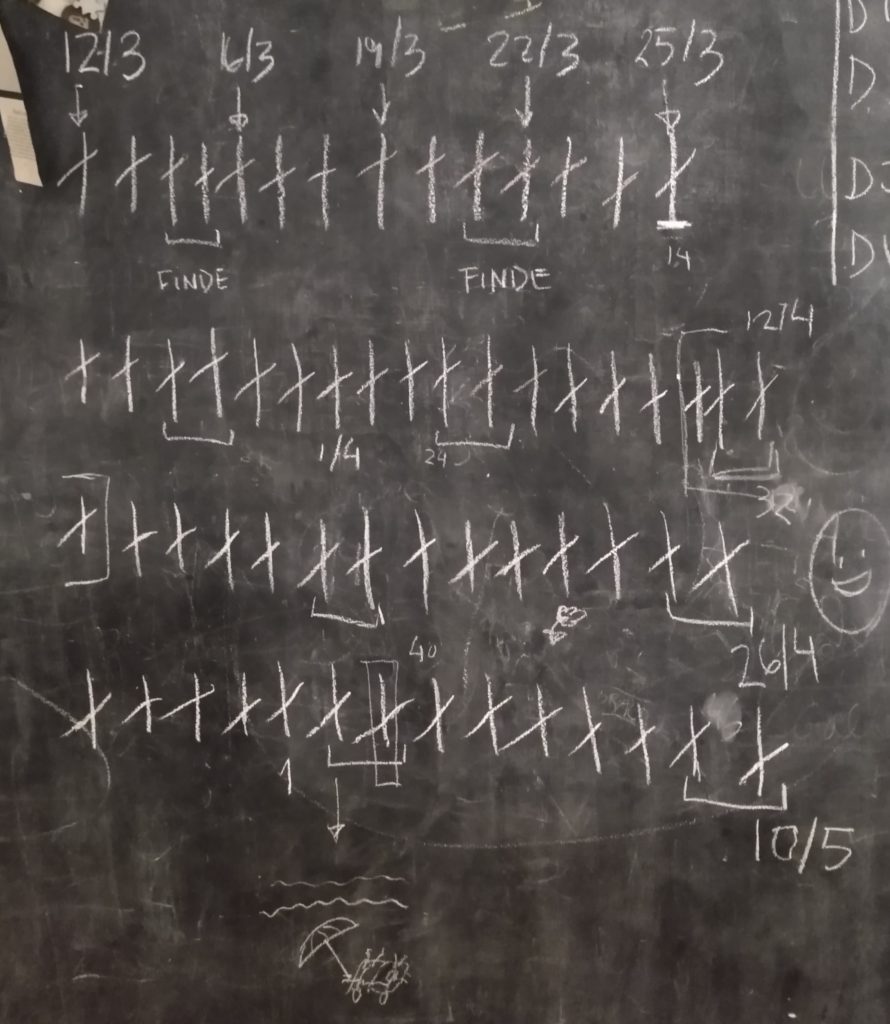 12/3 16/3 19/3 22/3 25/3
14
FINDE FINDE
12/4
1/4 24
40 26/4
1
10/5
D
D
D
D